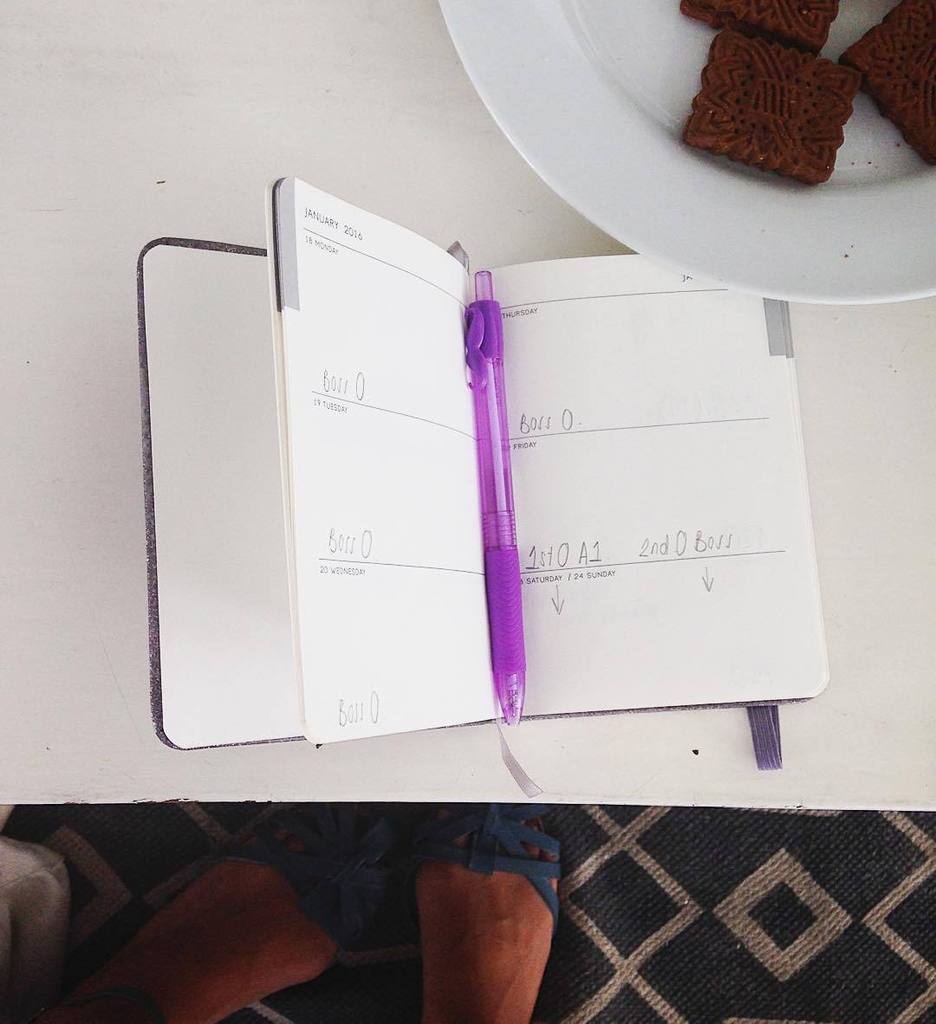 JANUARY 2016
18 MONDAY
Boss O
19 TUESDAY
Boss O
20 WEDNESDAY
Boss O
JA
THURSDAY
Boss O.
FRIDAY
1st O A1 2nd O Boss
SATURDAY / 24 SUNDAY